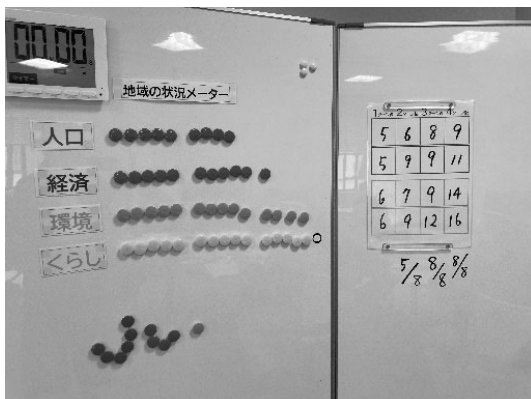 00:00
地域の状況メーター
人口
経済
環境
くらし
5 6 8 9
5 9 9 11
6 7 9 14
6 9 12 16
5/8 8/8 8/8